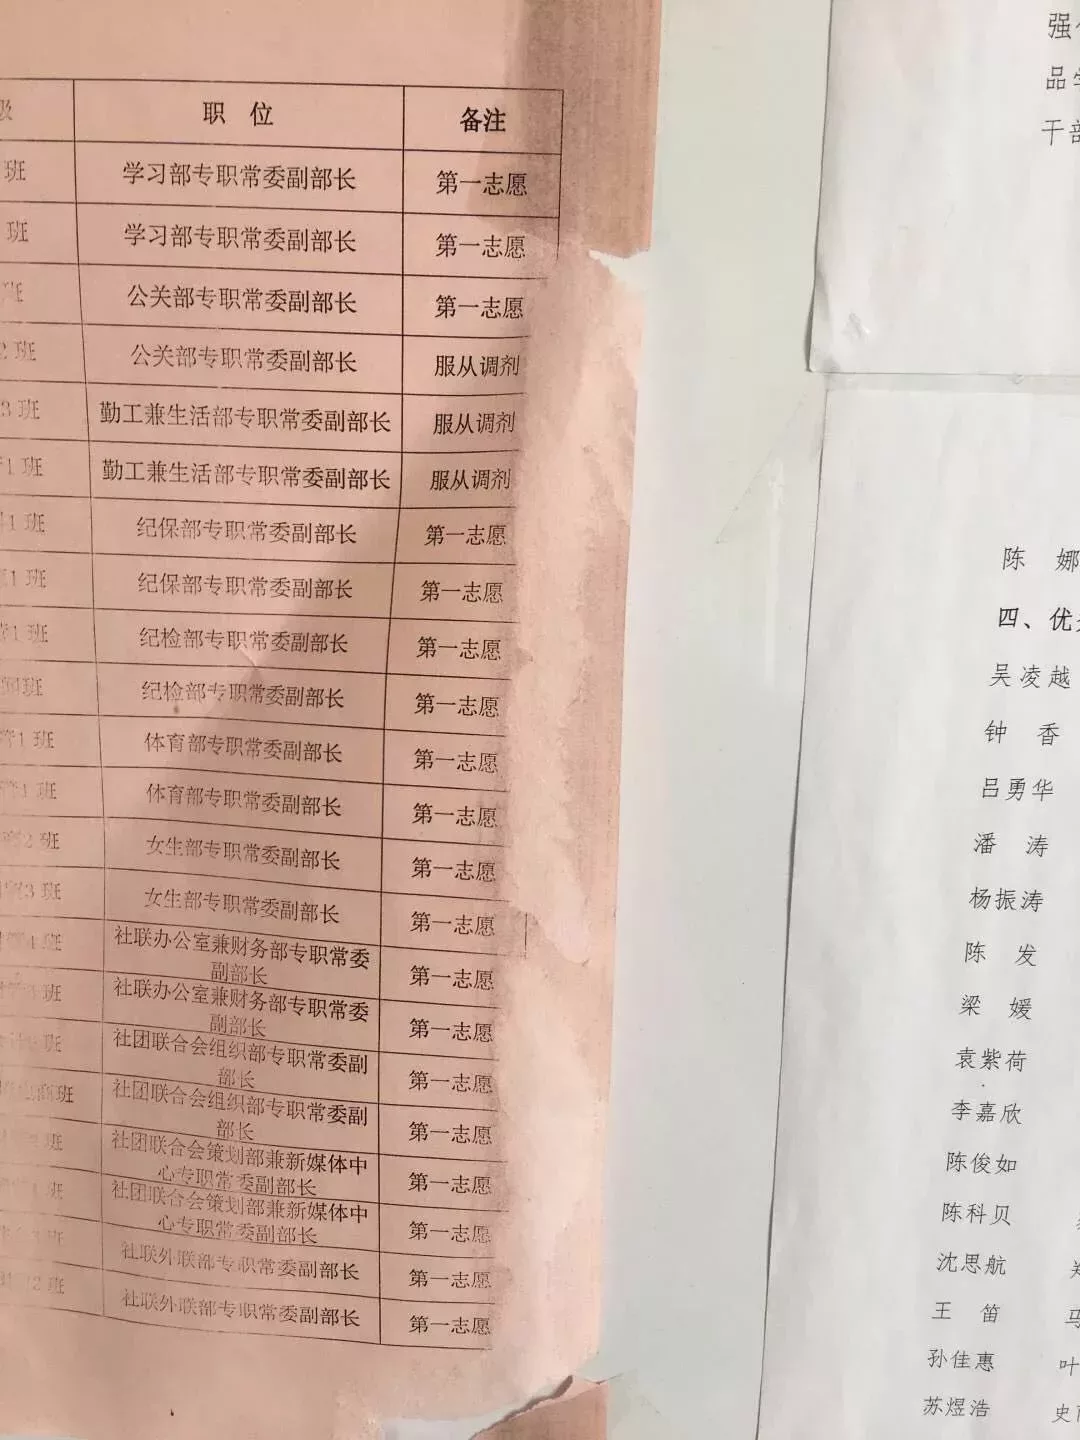 级 职 位 备注
班 学习部专职常委副部长 第一志愿
班 学习部专职常委副部长 第一志愿
班 公关部专职常委副部长 第一志愿
2班 公关部专职常委副部长 服从调剂
3班 勤工兼生活部专职常委副部长 服从调剂
1班 勤工兼生活部专职常委副部长 服从调剂
1班 纪保部专职常委副部长 第一志愿
1班 纪保部专职常委副部长 第一志愿
1班 纪检部专职常委副部长 第一志愿
班 纪检部专职常委副部长 第一志愿
1班 体育部专职常委副部长 第一志愿
1班 体育部专职常委副部长 第一志愿
2班 女生部专职常委副部长 第一志愿
3班 女生部专职常委副部长 第一志愿
班 社联办公室兼财务部专职常委
副部长 第一志愿
班 社联办公室兼财务部专职常委
副部长 第一志愿
班 社团联合会组织部专职常委副
部长 第一志愿
班 社团联合会组织部专职常委副
部长 第一志愿
班 社团联合会策划部兼新媒体中
心专职常委副部长 第一志愿
班 社团联合会策划部兼新媒体中
心专职常委副部长 第一志愿
班 社联外联部专职常委副部长 第一志愿
2班 社联外联部专职常委副部长 第一志愿
强
品
干部
陈 娜
四、优
吴凌越
钟 香
吕勇华
潘 涛
杨振涛
陈 发
梁 媛
袁紫荷
李嘉欣
陈俊如
陈科贝
沈思航
王 笛 马
孙佳惠 叶
苏煜浩 史